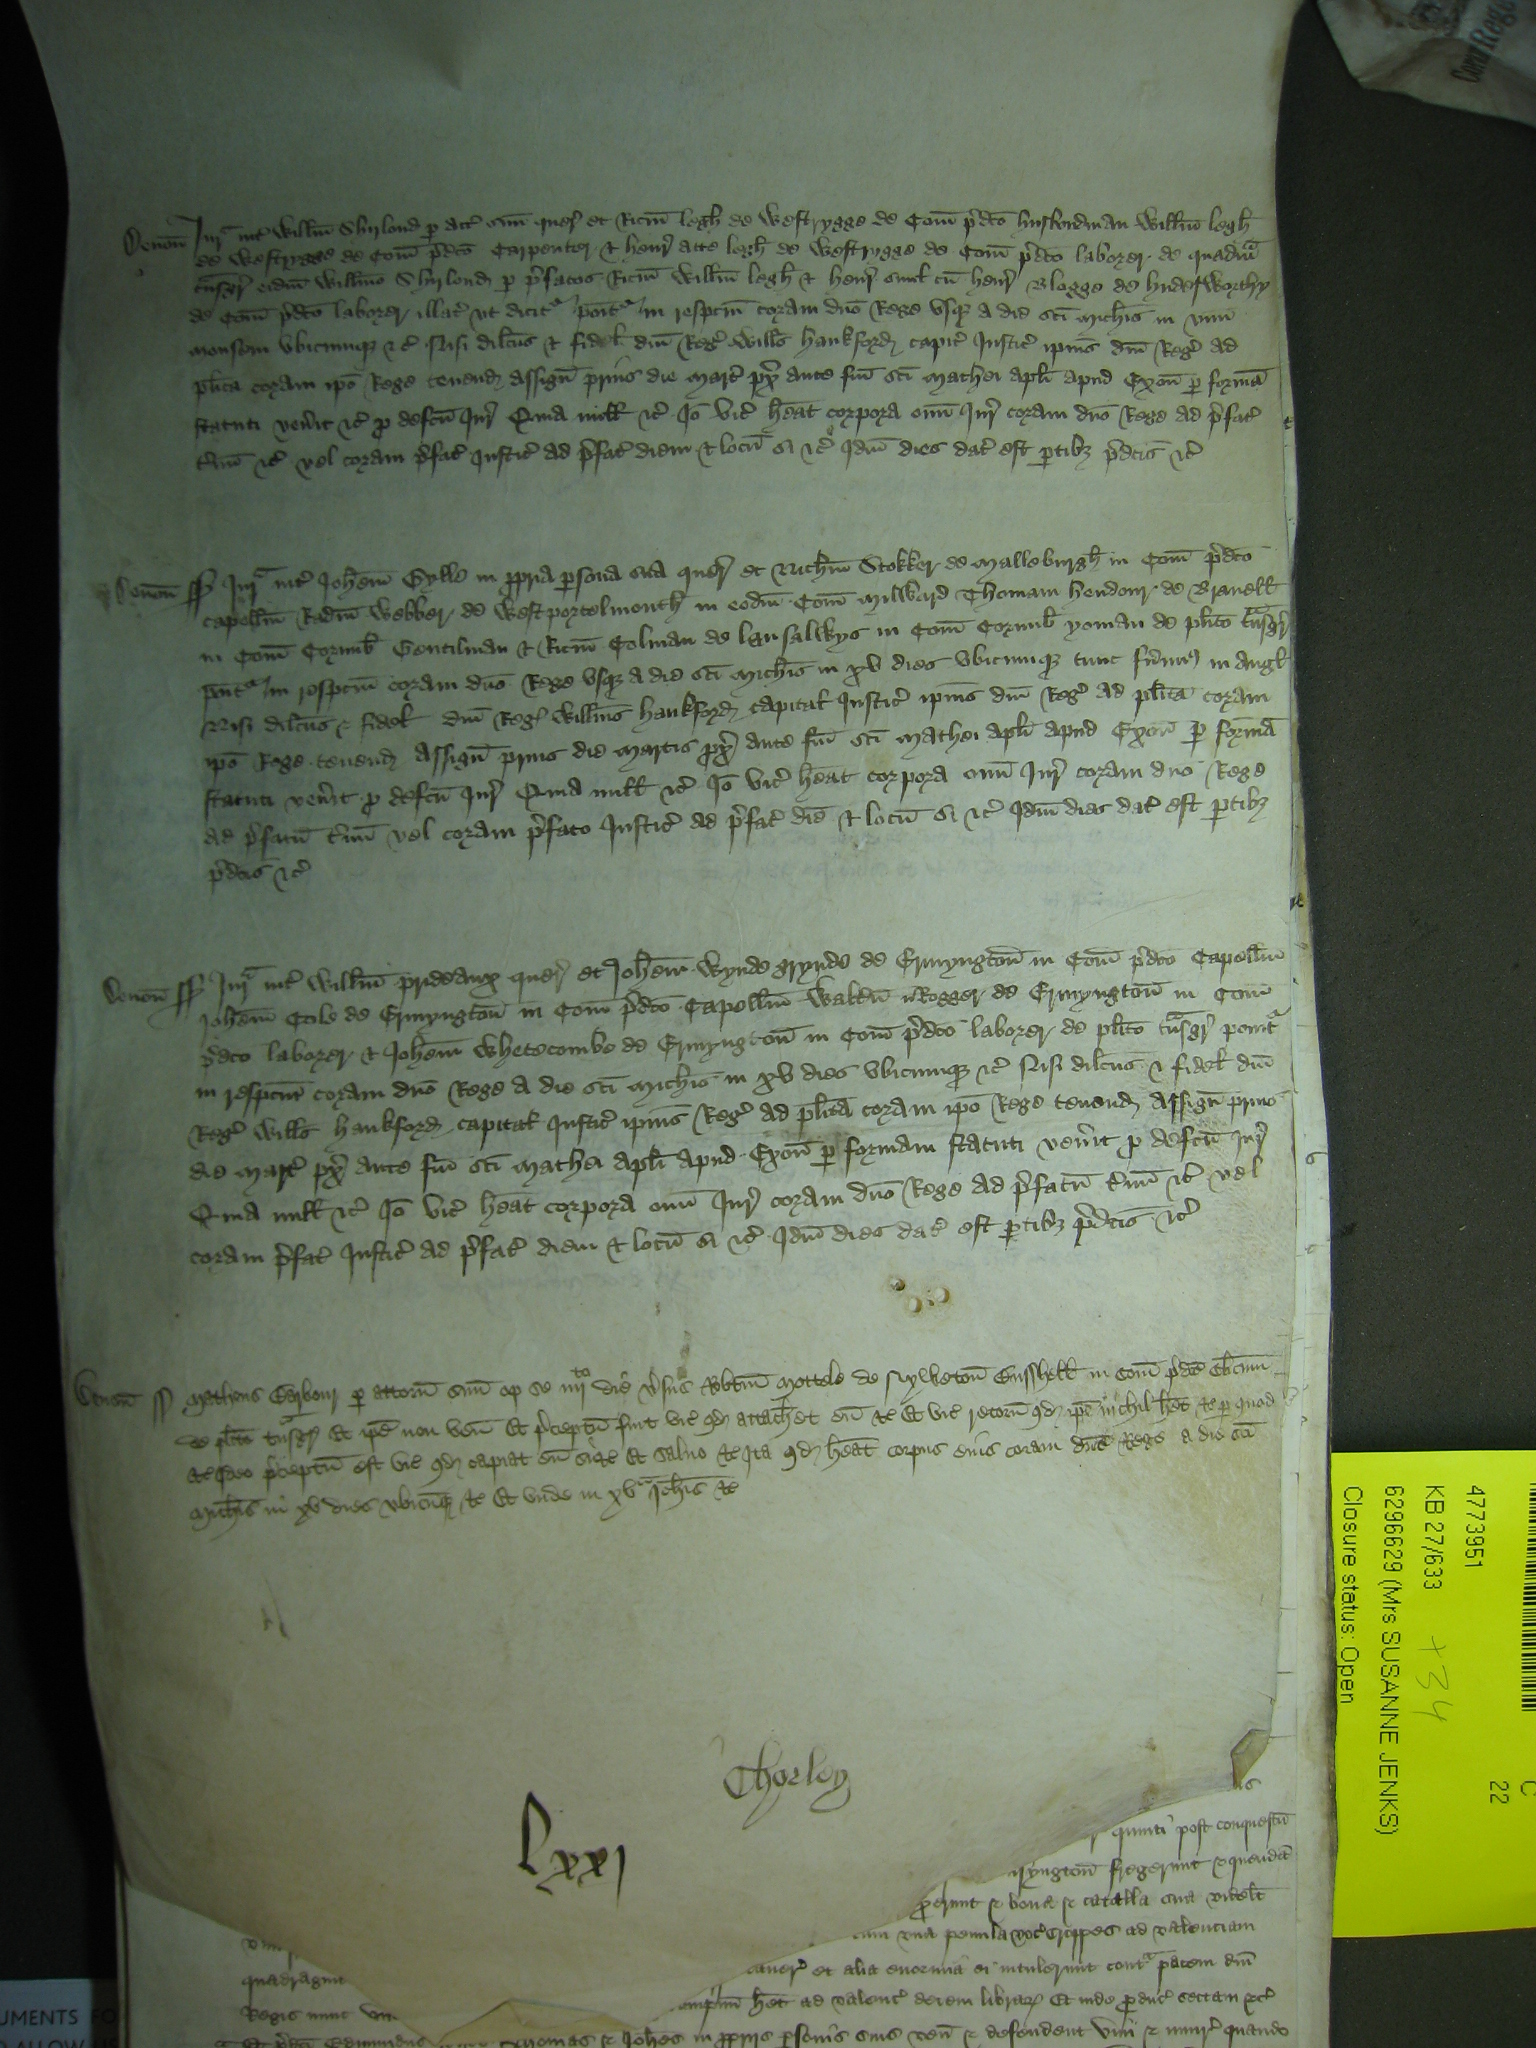 Devoñ Jur̄ int̄ Willm̄ Shirlond p att̄ suū quer̄ et Ricm̄ legh de Westrygge de Com̄ p̄dc̄o husbondman Willm̄ legh
de Westrygge de Com̄ p̄dc̄o Carpenter & henr̄ atte legh de Westrygge de Com̄ p̄dc̄o laborer de quadm̄
tn̄sgr̄ eidm̄ Willmo Shirlond p p̄fatos Ricm̄ Willm̄ legh & henr̄ simul cū henr̄ Blogge de
de Com̄ p̄dc̄o laborer illat̄ vt dicit̄ pon̄t in respcm̄ coram dn̄o Rege vsqz a die sc̄i Mich̄is in vnū
mensem vbicumqz &c̄ Nisi dilc̄us & fidel dn̄i Reḡ Will̄s hankford capit̄ Justic̄ ipius dn̄i Reḡ ad
plīta coram ip̄o Rege tenend assign̄ prius die mart̄ px̄ ante fm̄ sc̄i Mathei apl̄i apud Exon̄ p formā
statuti ven̄it &c̄ p defcū Jur̄ Quia null &c̄ Jō vic̄ h̄eat corpora om̄ Jur̄ coram dn̄o Rege ad p̄fat̄
t̄mū &c̄ vel coram p̄fat̄ Justic̄ ad p̄fat̄ diem & locū si &c̄ Jdm̄ dies dat̄ est ptibz p̄dc̄is &c̄
Devoñ ss Jur̄ int̄ Joh̄em Gylle in ppria psona sua quer̄ et Nich̄m Stokker de Malleburgh in Com̄ p̄dc̄o
capellm̄ Radm̄ Webber de Westportelmouth in eodm̄ Com̄ Milward Thomam hendour de Branell
in Com̄ Cornub̄ Gentilman & Ricm̄ Colman de lansalwys in Com̄ Cornub̄ yoman de plīto tn̄sgr̄
pon̄t in respcm̄ coram dn̄o Rege vsqz a die sc̄i Mich̄is in xv dies vbicumqz tunc fu̇imꝰ in Angl̄
Nisi dilc̄us & fidel dn̄i Reḡ Willm̄s hankford capital Justic̄ ipius dn̄i Reḡ ad plīta coram
ip̄o Rege tenend assign̄ prius die Martis px̄ ante fm̄ sc̄i Mathei apl̄i apud Exon̄ p formā
statuti ven̄it p defcū Jur̄ Quia null &c̄ Jō vic̄ h̄eat corpora om̄ Jur̄ coram dn̄o Rege
ad p̄fatū t̄mū vel coram p̄fato Justic̄ ad p̄fat̄ diē & locū si &c̄ Jdm̄ dies dat̄ est ptibz
p̄dc̄is &c̄
Devoñ ss Jur̄ int̄ Willm̄ prideaux quer̄ et Joh̄em Wyndegrynde de Ermyngtoū in Com̄ p̄dc̄o Capellm̄
Joh̄em Cole de Ermyngtoū in Com̄ p̄dc̄o Capellm̄ Waltū Rogger de Ermyngtoū in Com̄
p̄dc̄o laborer & Joh̄em Whetecombe de Ermyngtoū in Com̄ p̄dc̄o laborer de plīto tn̄sgr̄ ponit̄
in respcm̄ coram dn̄o Rege a die sc̄i Mich̄is in xv dies vbicumqz &c̄ Nisi dilc̄us & fidel dn̄i
Reḡ Will̄s hankford capital Justic̄ ipius Reḡ ad plīta coram ip̄o Rege tenend assign̄ prius
die mart̄ px̄ ante fm̄ sc̄i Mathei apl̄i apud Exon̄ p formam statuti ven̄it p defcū Jur̄
Quia null &c̄ Jō vic̄ h̄eat corpora om̄ Jur̄ coram dn̄o Rege ad p̄fatū t̄mū &c̄ vel
coram p̄fat̄ Justic̄ ad p̄fat̄ diem & locū si &c̄ Jdm̄ dies dat̄ est ptibz p̄dc̄is &c̄
Devoñ ss Matheus p attorn̄ suū op se iiijto die v̄sus Rob̄tm̄ de in Com̄ p̄dc̄o
de plīto tn̄sgr̄ Et ip̄e non ven̄ Et p̄ceptū fuit vic̄ qd attach̄et eū &c̄ Et vic̄ retorn̄ qd ip̄e nichil h̄et &c̄ p quod
&c̄ Jdeo p̄ceptū est vic̄ qd capiat eū si &c̄ Et saluo &c̄ Jta qd h̄eat corpus eius coram dn̄o Rege a die sc̄i
Mich̄is in xv dies vbicūqz &c̄ Et vnde in xva Joh̄is &c̄
Chorley
lxxj
quinti post conquestū
fregerunt & quendā
bona & catalla sua videlt
cum vna penula ad valenciam
quadragint et alia enormia ei intulerunt cont̄ pacem dn̄i
Regis nunc h̄et ad valenc̄ decem librar̄ Et inde pduc̄ sectam &c̄
Thomas & Joh̄es in ppriis psonis suis ven̄ & defendent vim & iniur̄ quando
4773951
KB 27/633
+34
6296629 (Mrs SUSANNE JENKS)
Closure status: Open
C
22
Coram Rege
UMENTS FO